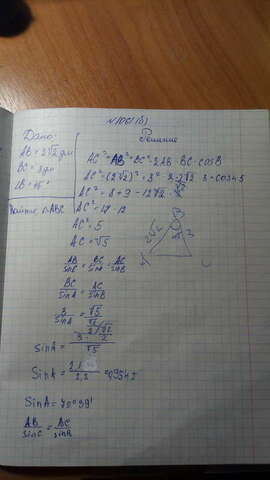 Дано:
AB = 2√2 дм
BC = 3 дм
∠B = 45°
Решение
AC² = AB² + BC² - 2AB · BC · cosB
AC² = (2√2)² + 3² - 2·2√2 · 3 · cos45
AC² = 8 + 9 - 12√2 ·
AC² = 17 - 12
AC² = 5
AC = √5
B
2√2
3
A
C
AB/sinC = BC/sinA = AC/sinB
BC/sinA = AC/sinB
3/sinA = √5/(√2/2)
sinA = (3 · √2/2)/√5
sinA =
sinA = 70°39'
AB/sinC = BC/sinA